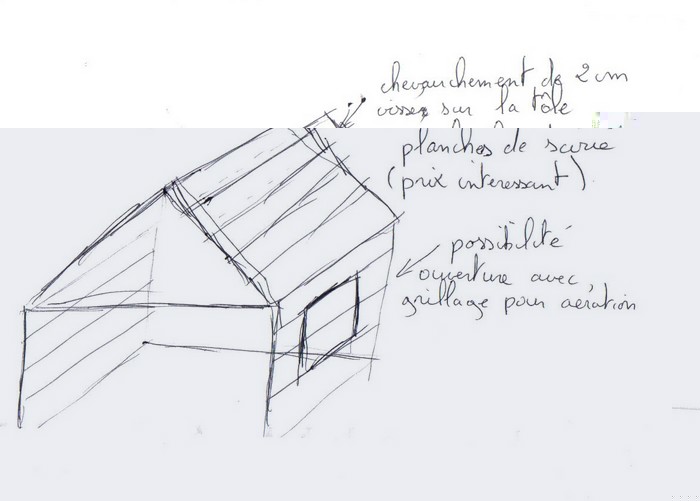 chevauchement de 2 cm
vissés sur la tôle
planches de scirie
(prix interessant)
possibilité
ouverture avec
grillage pour aération